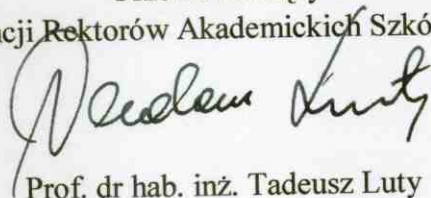 cji Rektorów Akademickich Szkó
Tadeusz Luty
Prof. dr hab. inż. Tadeusz Luty